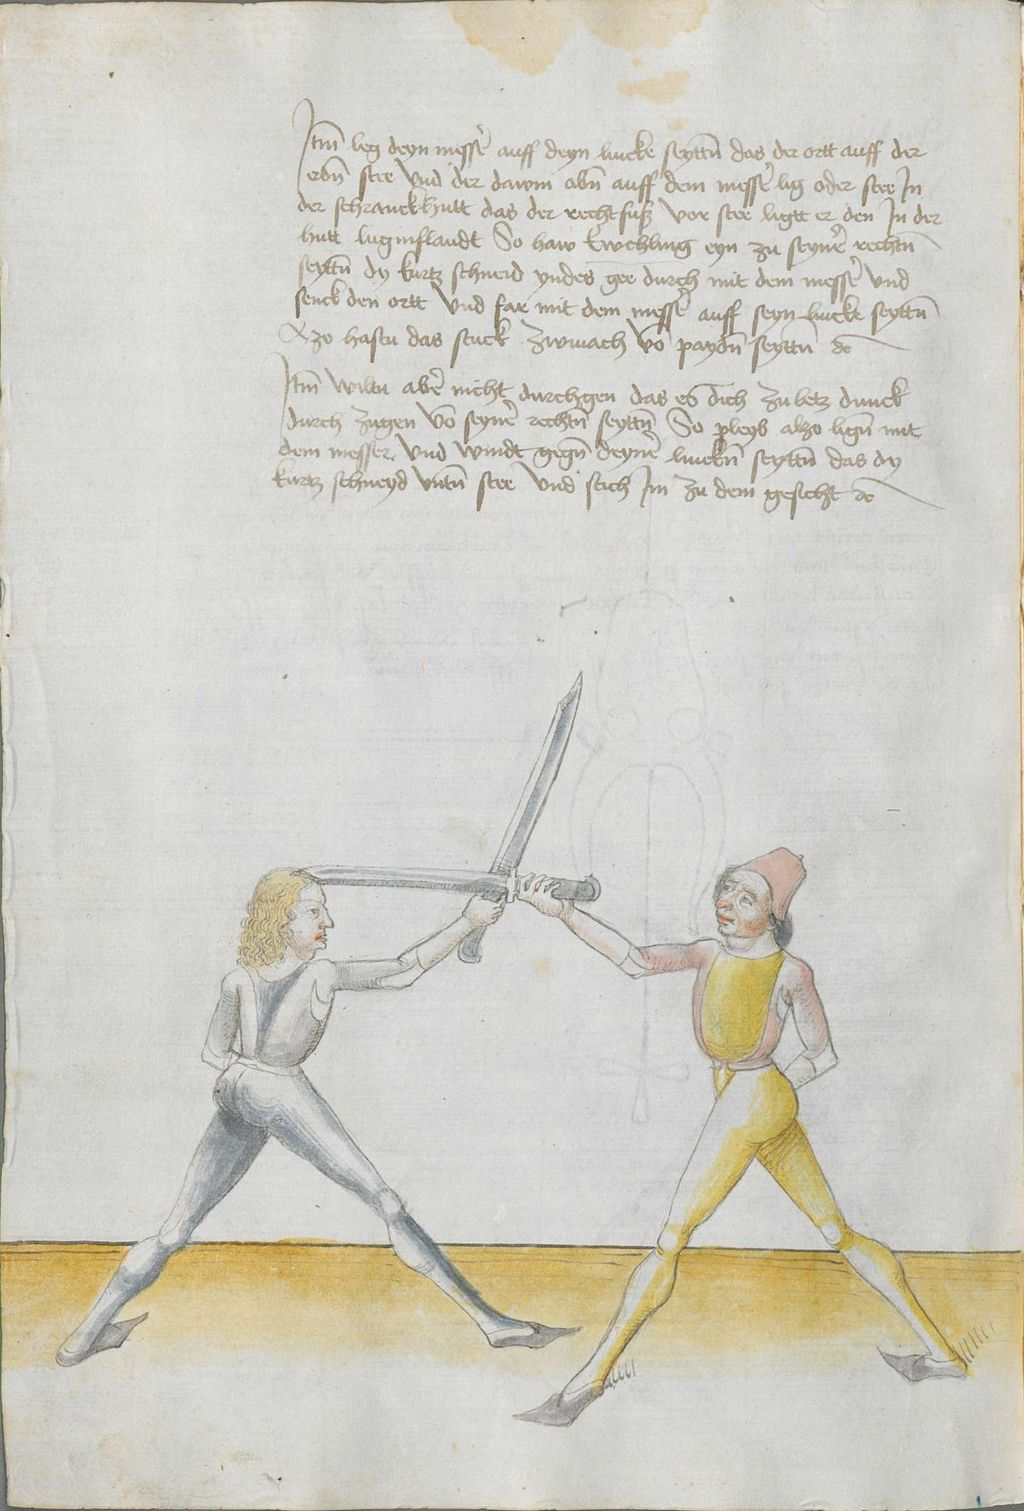 Itm̄ leg deyn messer̄ auff deyn lincke seyttñ das der ortt auff der
erdñ stee Vnd der dawm obñ auff dem messer̄ lig oder stee In
der schranckhutt das der recht fuß vor stee ligtt er den In der
hutt luginslandt So haw twehling eyn zu seyner̄ rechtñ
seyttñ dy kurtz schneid yndes gee durch mit dem messer̄ Vnd
senck den ortt Vnd far mit dem messer̄ auff seyn lincke seyttñ
Alzo hastu das stuck zwinach vō paydñ seyttñ &c
Itm̄ wiltu aber̄ nicht durchgen das es dich zu letz dunck
durch zugen vō seyner̄ rechtñ seyttñ So pleyb alzo lign̄ mit
dem messer Vnd windt gegn̄ deyner̄ linckñ seyttñ das dy
kurtz schneyd vntñ stee Vnd stich Im zu dem gesicht &c